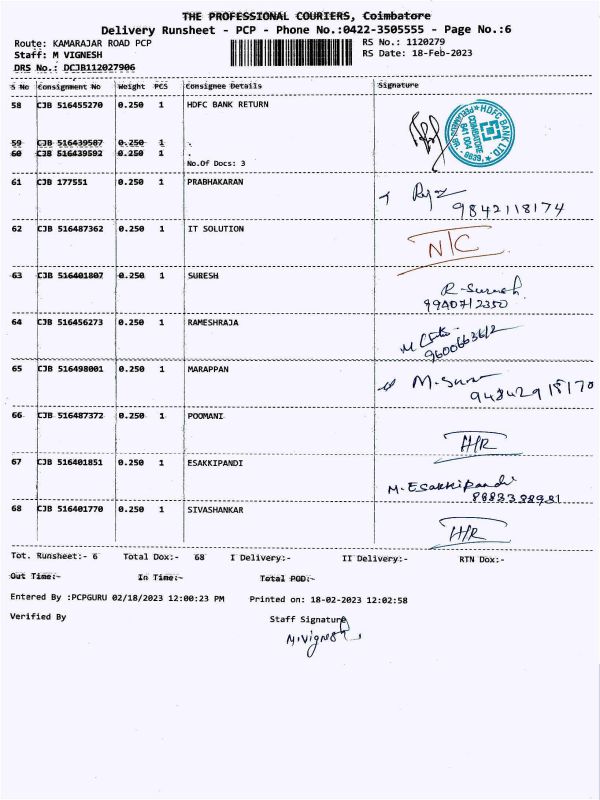 THE PROFESSIONAL COURIERS, Coimbatore
Delivery Runsheet - PCP - Phone No.:0422-3505555 - Page No.:6
Route: KAMARAJAR ROAD PCP
Staff: M VIGNESH
DRS No.: DCJB112027906
RS No.: 1120279
RS Date: 18-Feb-2023
S No Consignment No Weight PCS Consignee Details Signature
58 CJB 516455270 0.250 1 HDFC BANK RETURN
HDFC BANK LTD.
COIMBATORE
641 004
59 CJB 516439587 0.250 1 .
60 CJB 516439592 0.250 1 .
No.Of Docs: 3
61 CJB 177551 0.250 1 PRABHAKARAN
9842118174
62 CJB 516487362 0.250 1 IT SOLUTION N/C
63 CJB 516401807 0.250 1 SURESH R-Suresh
9940712350
64 CJB 516456273 0.250 1 RAMESHRAJA
9600663612
65 CJB 516498001 0.250 1 MARAPPAN
94842918170
66 CJB 516487372 0.250 1 POOMANI H/R
67 CJB 516401851 0.250 1 ESAKKIPANDI M.Esakkipandi
8883388981
68 CJB 516401770 0.250 1 SIVASHANKAR H/R
Tot. Runsheet:- 6 Total Dox:- 68 I Delivery:- II Delivery:- RTN Dox:-
Out Time:- In Time:- Total POD:-
Entered By :PCPGURU 02/18/2023 12:00:23 PM Printed on: 18-02-2023 12:02:58
Verified By Staff Signature
M.Vignesh